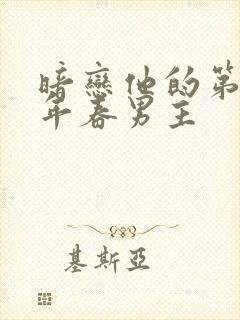 暗戀他的第
年春男主
基斯亞